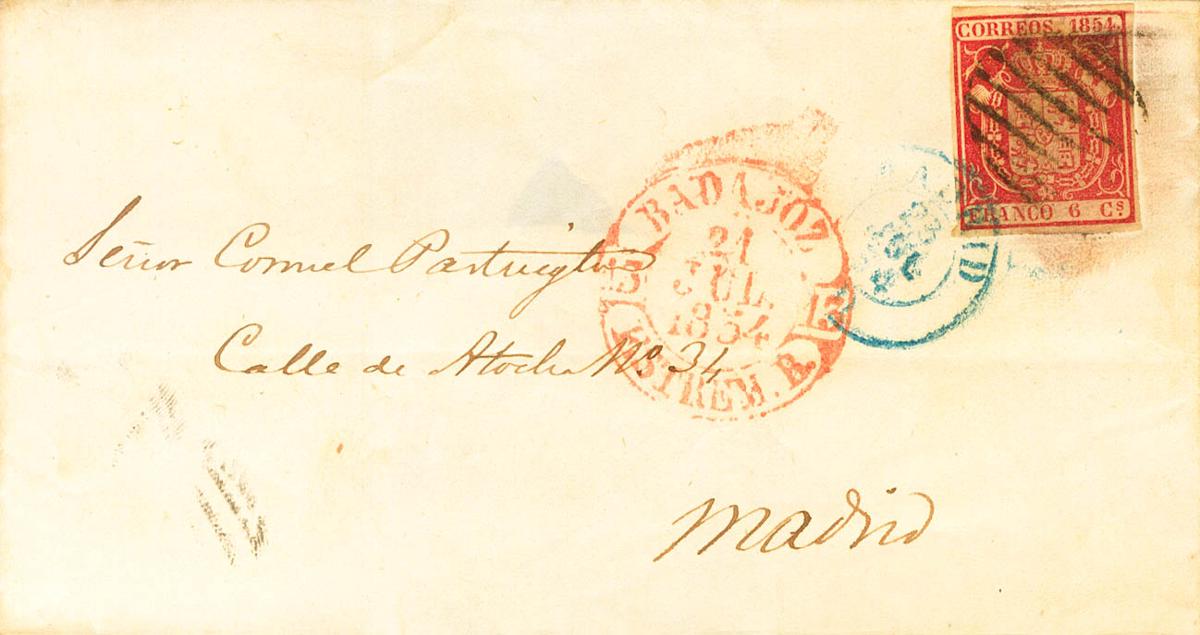 CORREOS. 1854.
FRANCO 6 Cs
MADRID
BADAJOZ
21
JUL.
1854
15 15
ESTREM. B.
Señor Cornuel Partington
Calle de Atocha No. 34
Madrid